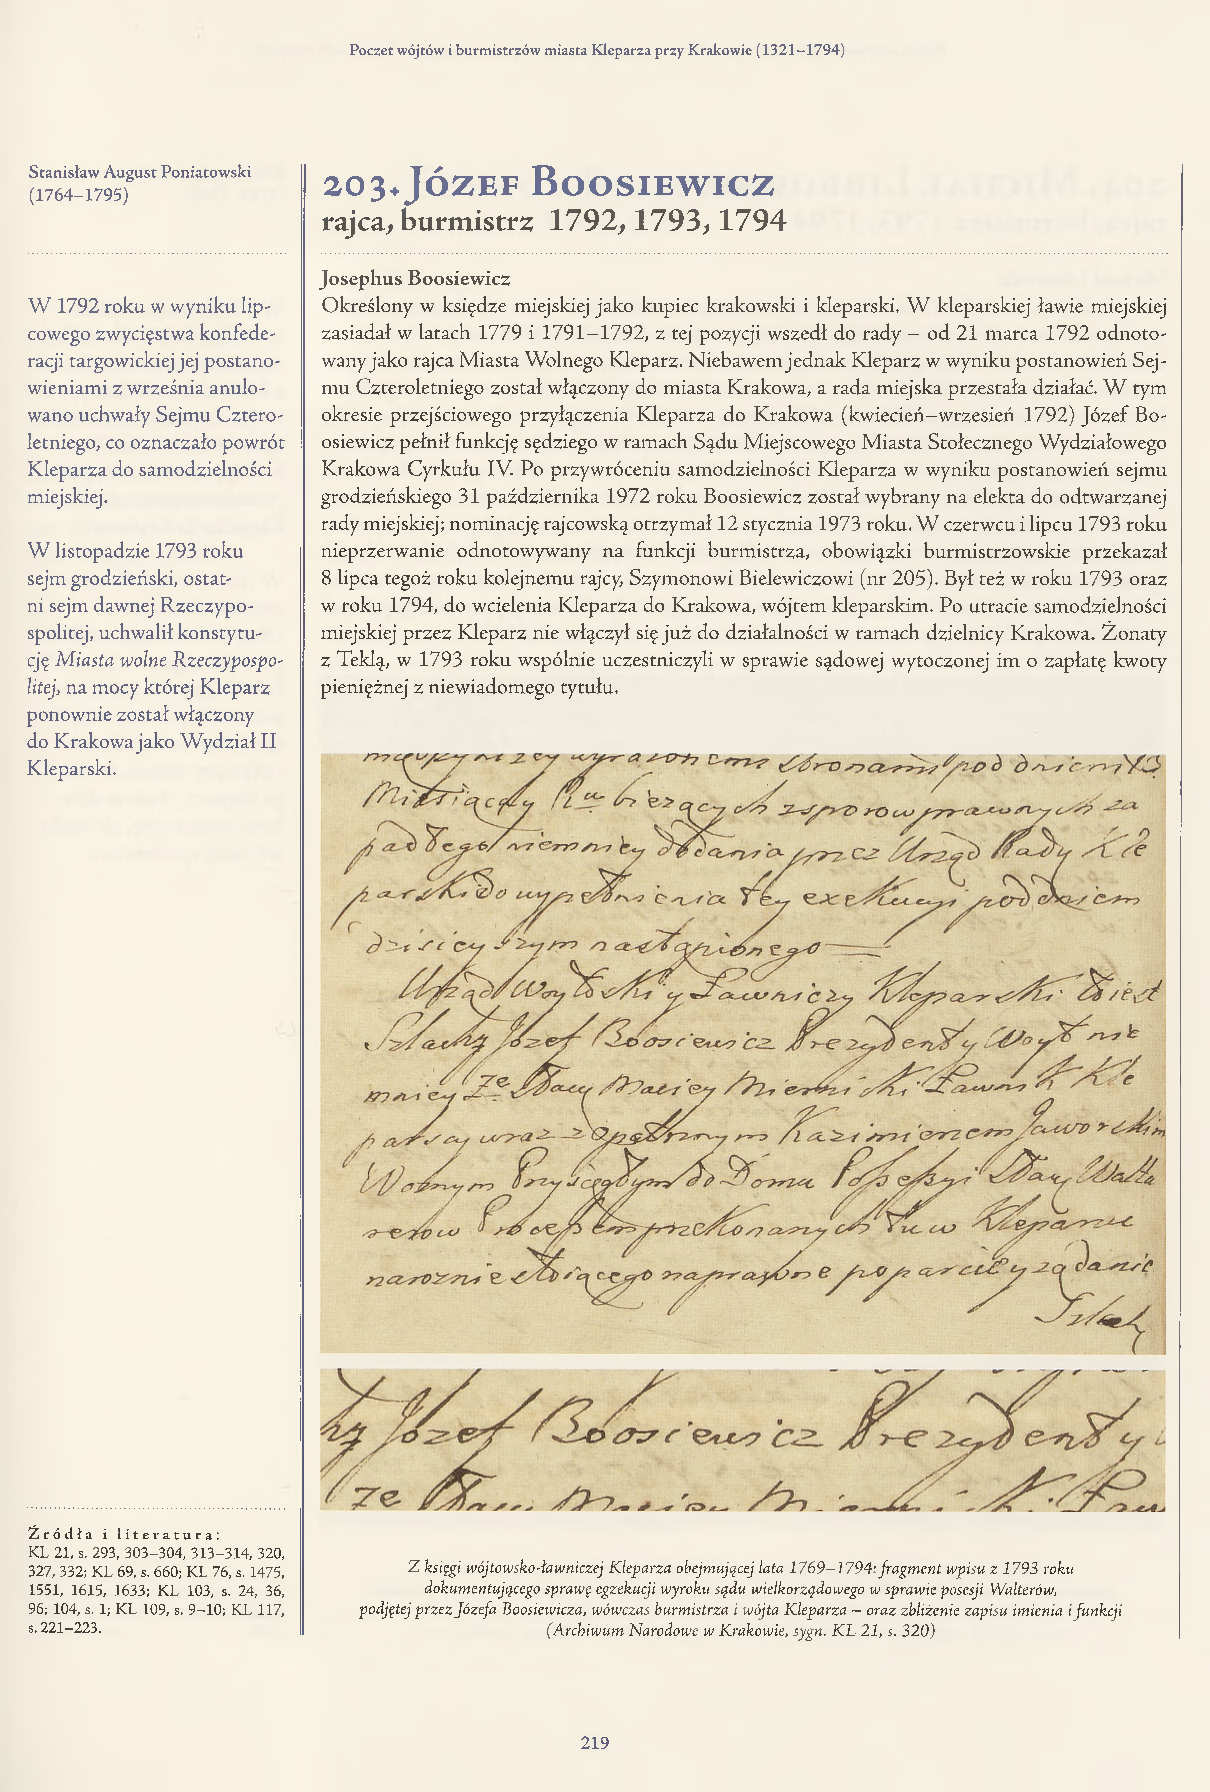 Poczet wójtów i burmistrzów miasta Kleparza przy Krakowie (1321–1794)
Stanisław August Poniatowski
(1764–1795)
W 1792 roku w wyniku lip-
cowego zwycięstwa konfede-
racji targowickiej jej postano-
wieniami z września anulo-
wano uchwały Sejmu Cztero-
letniego, co oznaczało powrót
Kleparza do samodzielności
miejskiej.
W listopadzie 1793 roku
sejm grodzieński, ostat-
ni sejm dawnej Rzeczypo-
spolitej, uchwalił konstytu-
cję Miasta wolne Rzeczypospo-
litej, na mocy której Kleparz
ponownie został włączony
do Krakowa jako Wydział II
Kleparski.
Źródła i literatura:
KL 21, s. 293, 303–304, 313–314, 320,
327, 332; KL 69, s. 660; KL 76, s. 1475,
1551, 1615, 1633; KL 103, s. 24, 36,
96; 104, s. 1; KL 109, s. 9–10; KL 117,
s. 221–223.
203. Józef Boosiewicz
rajca, burmistrz 1792, 1793, 1794
Josephus Boosiewicz
Określony w księdze miejskiej jako kupiec krakowski i kleparski. W kleparskiej ławie miejskiej
zasiadał w latach 1779 i 1791–1792, z tej pozycji wszedł do rady – od 21 marca 1792 odnoto-
wany jako rajca Miasta Wolnego Kleparz. Niebawem jednak Kleparz w wyniku postanowień Sej-
mu Czteroletniego został włączony do miasta Krakowa, a rada miejska przestała działać. W tym
okresie przejściowego przyłączenia Kleparza do Krakowa (kwiecień–wrzesień 1792) Józef Bo-
osiewicz pełnił funkcję sędziego w ramach Sądu Miejscowego Miasta Stołecznego Wydziałowego
Krakowa Cyrkułu IV. Po przywróceniu samodzielności Kleparza w wyniku postanowień sejmu
grodzieńskiego 31 października 1972 roku Boosiewicz został wybrany na elekta do odtwarzanej
rady miejskiej; nominację rajcowską otrzymał 12 stycznia 1973 roku. W czerwcu i lipcu 1793 roku
nieprzerwanie odnotowywany na funkcji burmistrza, obowiązki burmistrzowskie przekazał
8 lipca tegoż roku kolejnemu rajcy, Szymonowi Bielewiczowi (nr 205). Był też w roku 1793 oraz
w roku 1794, do wcielenia Kleparza do Krakowa, wójtem kleparskim. Po utracie samodzielności
miejskiej przez Kleparz nie włączył się już do działalności w ramach dzielnicy Krakowa. Żonaty
z Teklą, w 1793 roku wspólnie uczestniczyli w sprawie sądowej wytoczonej im o zapłatę kwoty
pieniężnej z niewiadomego tytułu.
wyrazonemi stronami pod dniem
Miesiąca y Ru bieżących z sporow prawnych za
padłego niemniey dodania przez Urząd Rady Kle
parski do wypełnienia tey exekucyi pod dniem
dzisieyszym nastąpionego
Urząd Woytoski y Ławniczy Kleparski to iest
Szlachz Jozef Boosiewicz Prezydent y Woyt nie
mniey Ze Sław Maciey Miernicki Ławnik Kle
parscy wraz z Opatrznym Kazimierzem Jaworskim
Woznym Przysięgłym do Domu Possessyi Sław Walte
rerow Processem przekonanych tu w Kleparzu
naroznie stoiącego naprawne poparcie y ządanie
Szlach
Jozef Boosiewicz Prezydent y
Ze Sław Maciey Miernicki Ław
Z księgi wójtowsko-ławniczej Kleparza obejmującej lata 1769–1794: fragment wpisu z 1793 roku
dokumentującego sprawę egzekucji wyroku sądu wielkorządowego w sprawie posesji Walterów,
podjętej przez Józefa Boosiewicza, wówczas burmistrza i wójta Kleparza – oraz zbliżenie zapisu imienia i funkcji
(Archiwum Narodowe w Krakowie, sygn. KL 21, s. 320)
219